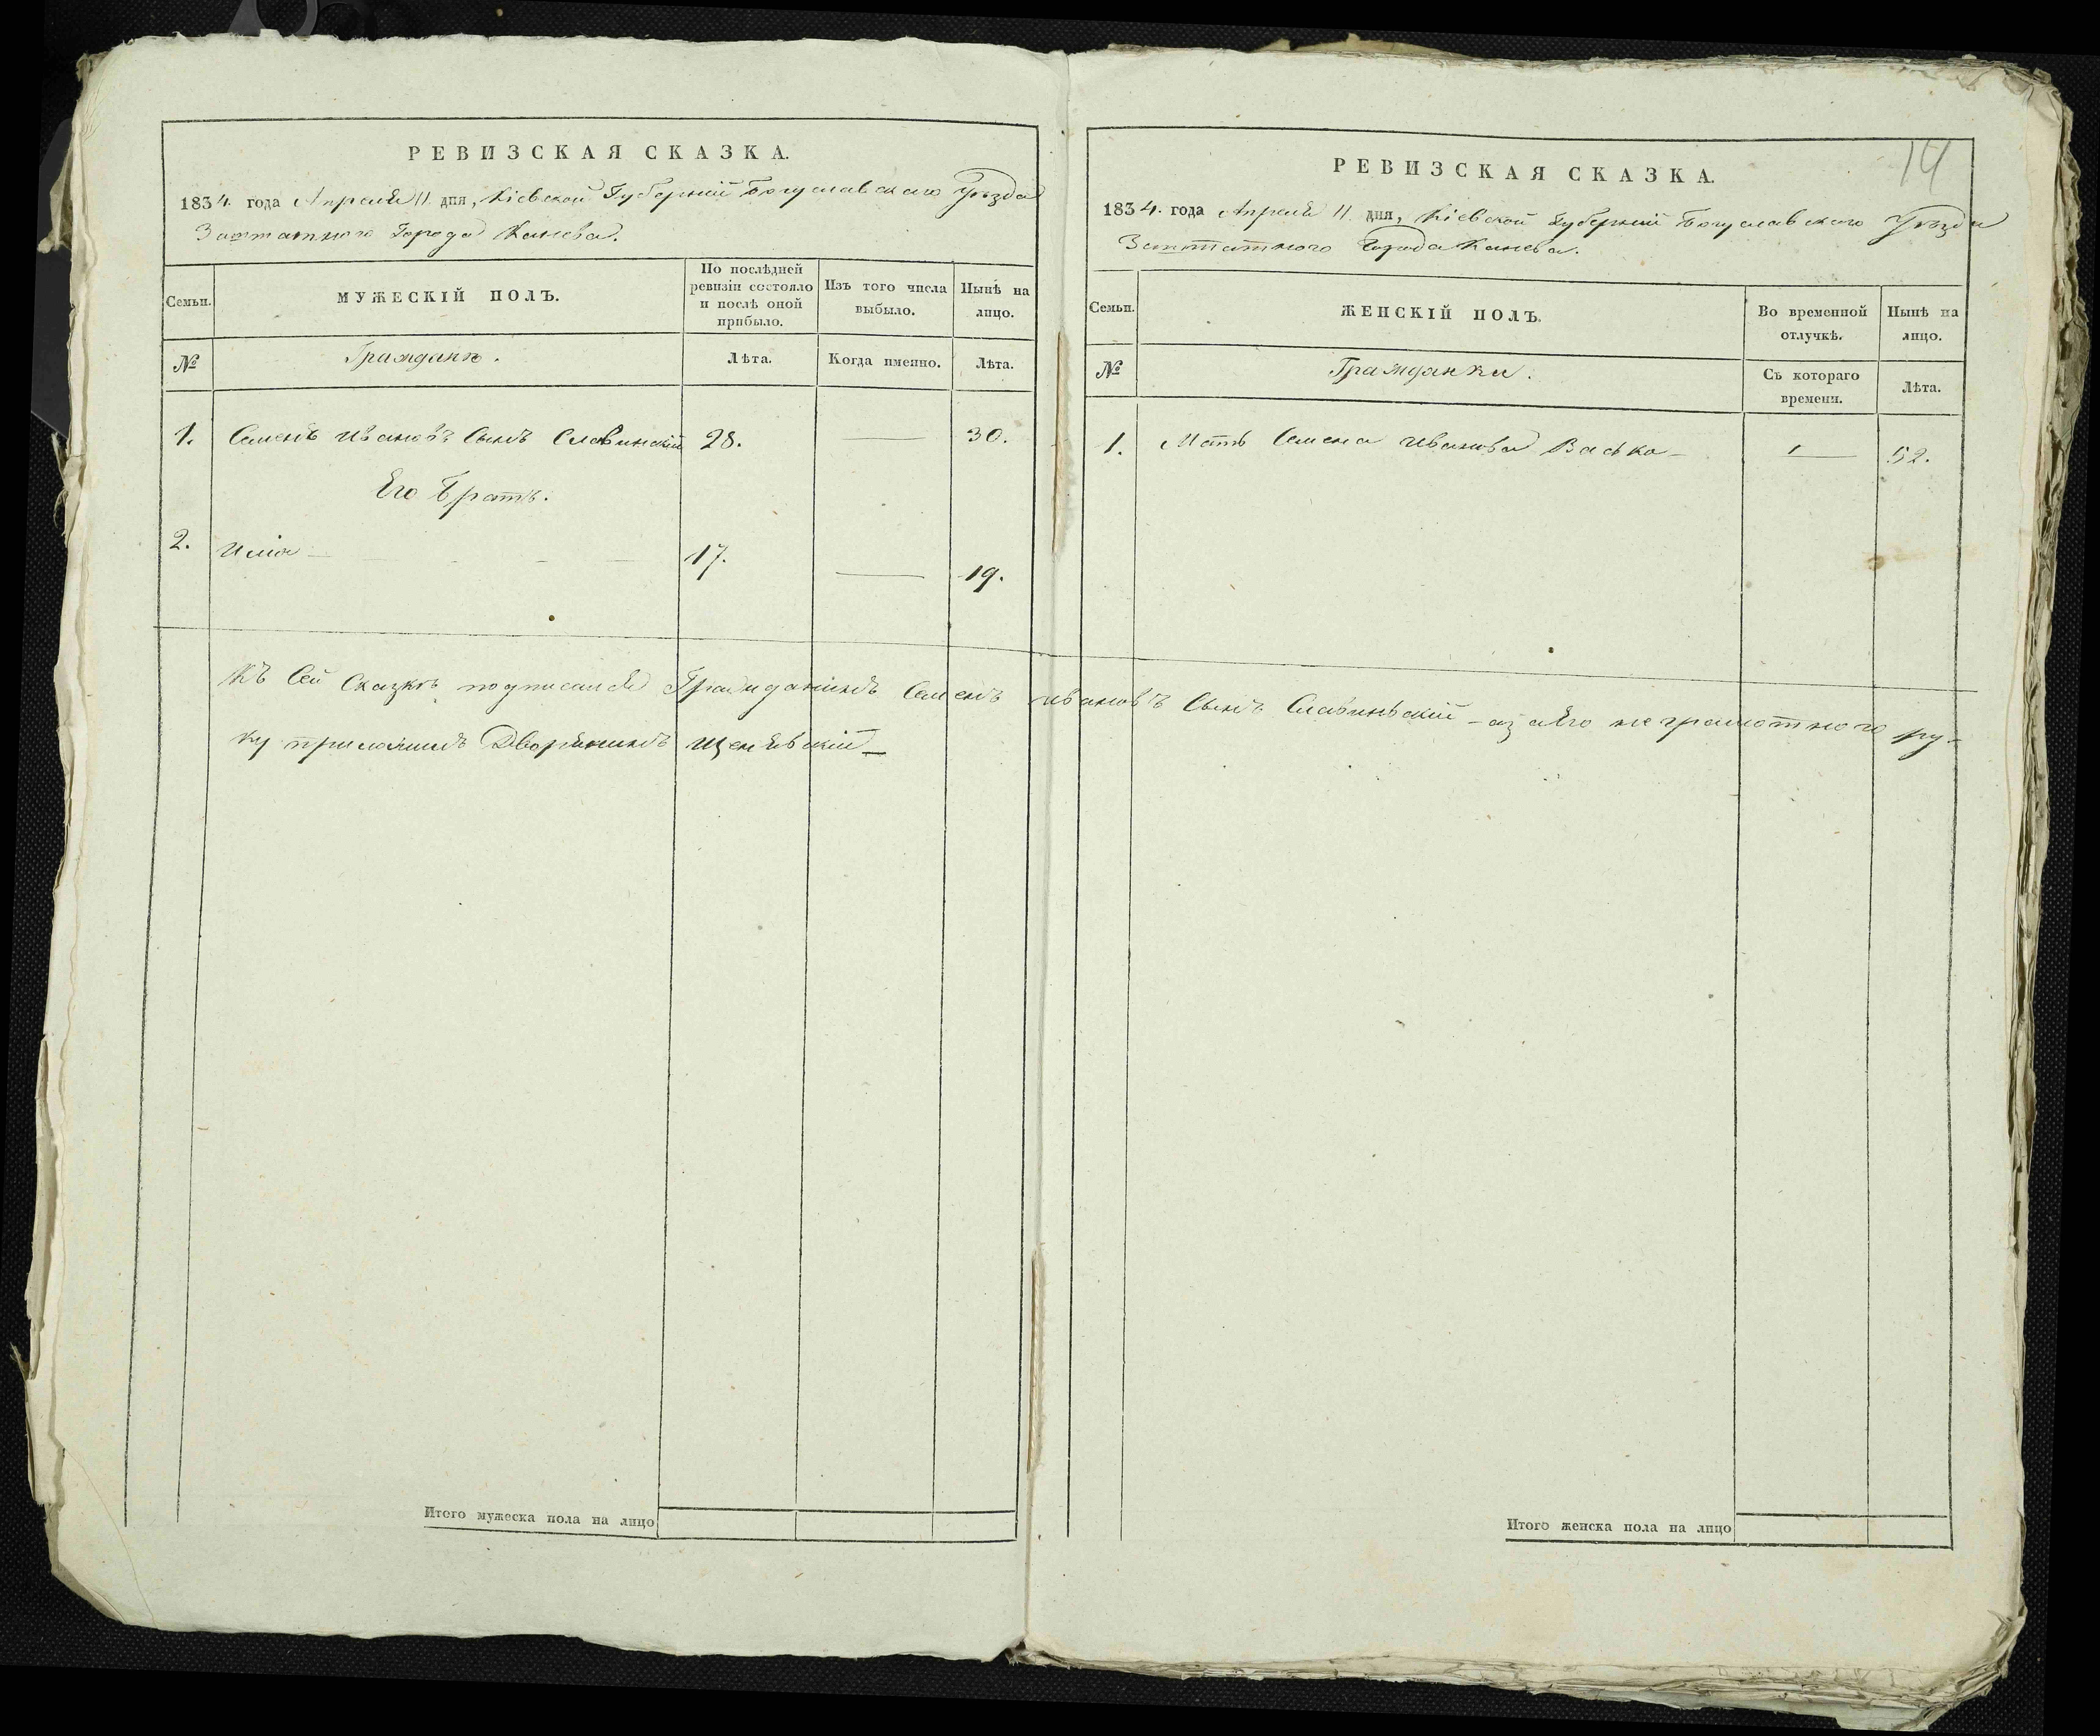 РЕВИЗСКАЯ СКАЗКА.
1834. года Апреля 11. дня, Кіевской Губерніи Богуславского Уѣзда
Заштатного Города Канева.
Семьи.
МУЖЕСКІЙ ПОЛЪ.
По послѣдней
ревизіи состояло
и послѣ оной
прибыло.
Изъ того числа
выбыло.
Нынѣ на
лицо.
№
Гражданѣ.
Лѣта.
Когда именно.
Лѣта.
1. Семенъ Ивановъ Сынъ Славинскій 28. — 30.
Его Братъ.
2. Илія 17. — 19.
РЕВИЗСКАЯ СКАЗКА.
14
1834. года Апреля 11. дня, Кіевской Губерніи Богуславского Уѣзда
Заштатного Города Канева.
Семьи.
ЖЕНСКІЙ ПОЛЪ.
Во временной
отлучкѣ.
Нынѣ на
лицо.
№
Гражданки.
Съ котораго
времени.
Лѣта.
1. Мать Семена Иванова Васька — — 52.
Къ Сей Сказкѣ подписался Гражданинъ Семенъ Ивановъ Сынъ Славиньский – а за Его не грамотного ру-
ку приложилъ Дворянинъ
Итого мужеска пола на лицо
Итого женска пола на лицо